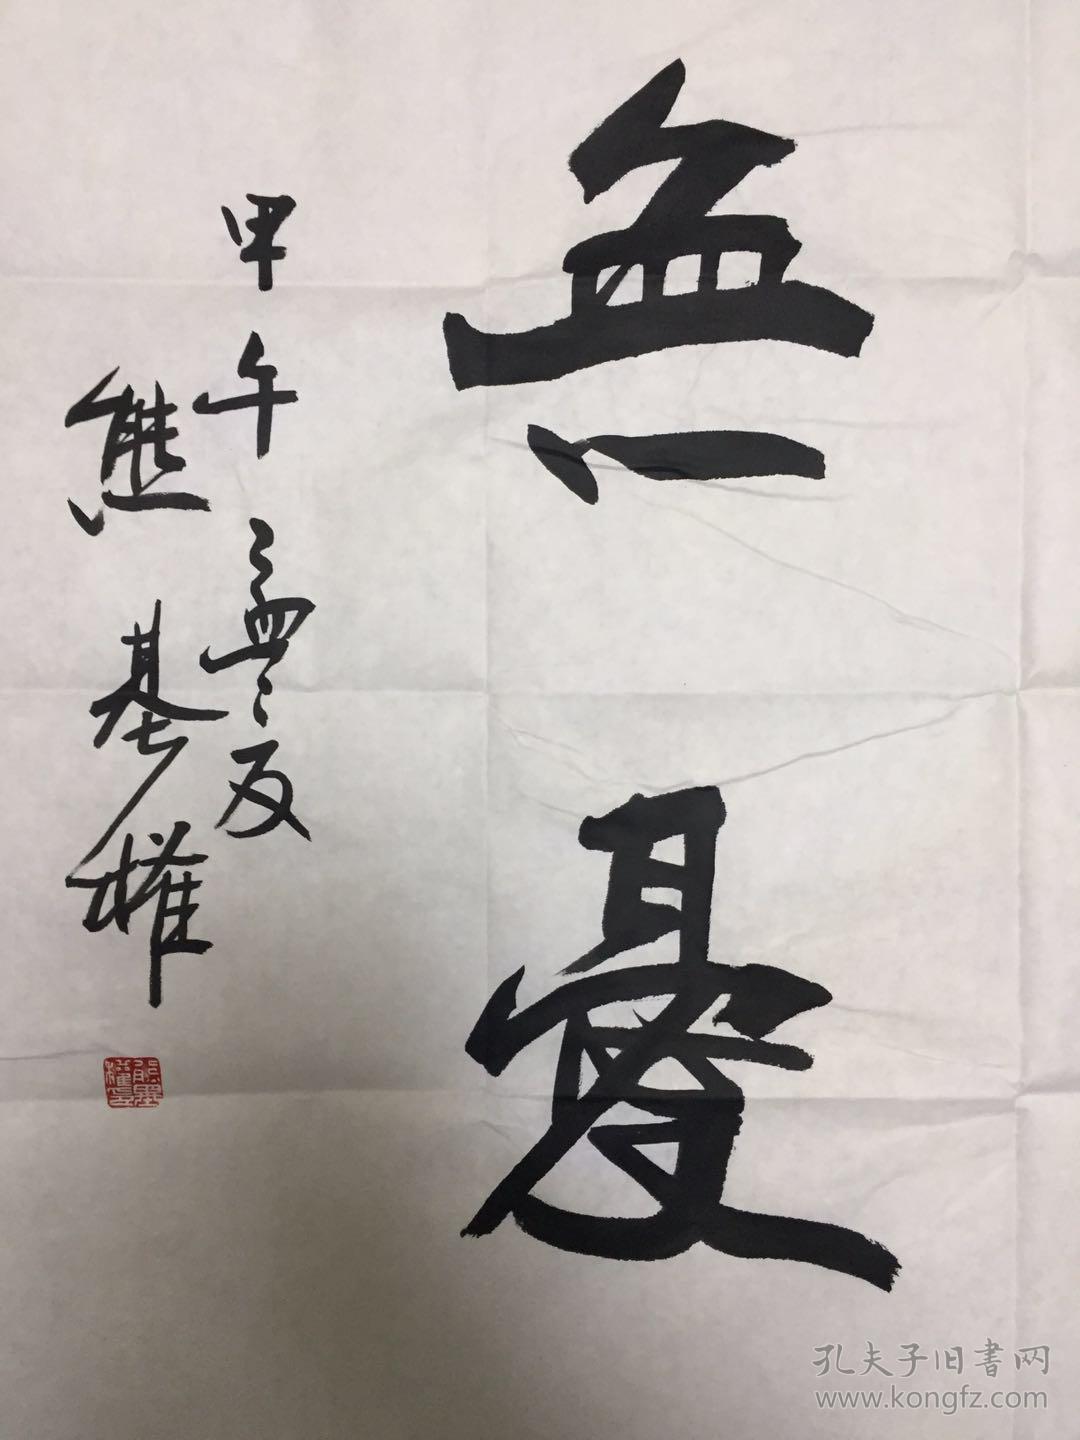 無憂
甲午孟夏
熊基權
孔夫子旧書网
www.kongfz.com